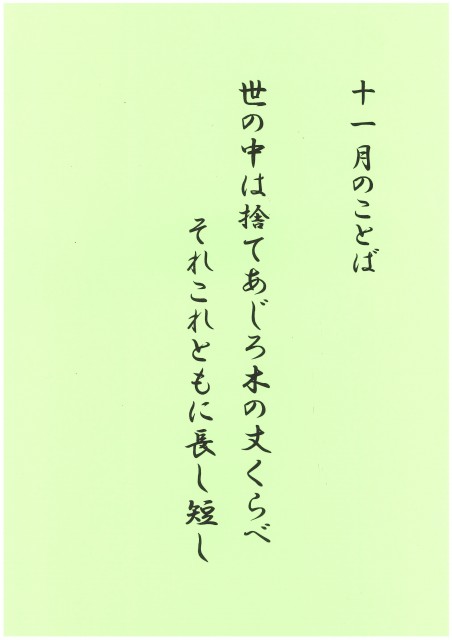 十一月のことば
世の中は捨てあじろ木の丈くらべ
それこれともに長し短し